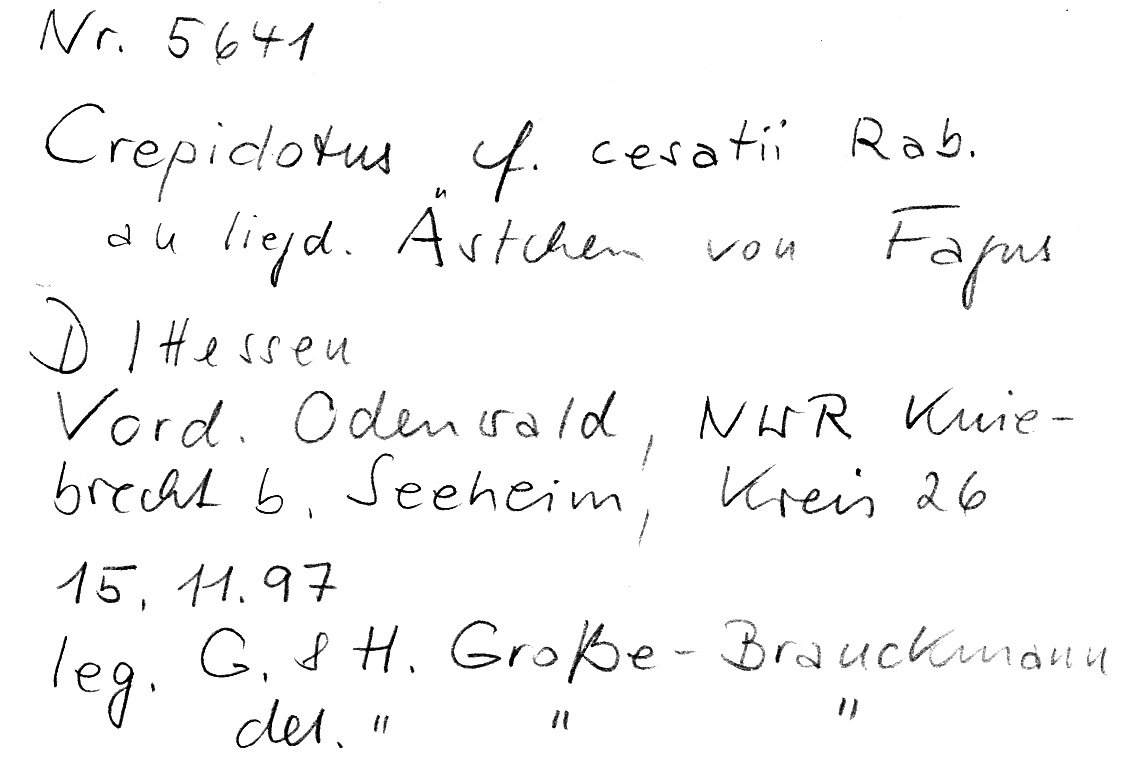 Nr. 5641
Crepidotus cf. cesatii Rab.
an liegd. Ästchen von Fagus
D / Hessen
Vord. Odenwald, NWR Knie-
brecht b. Seeheim, Kreis 26
15. 11. 97
leg. G. & H. Große-Brauckmann
det. " " "